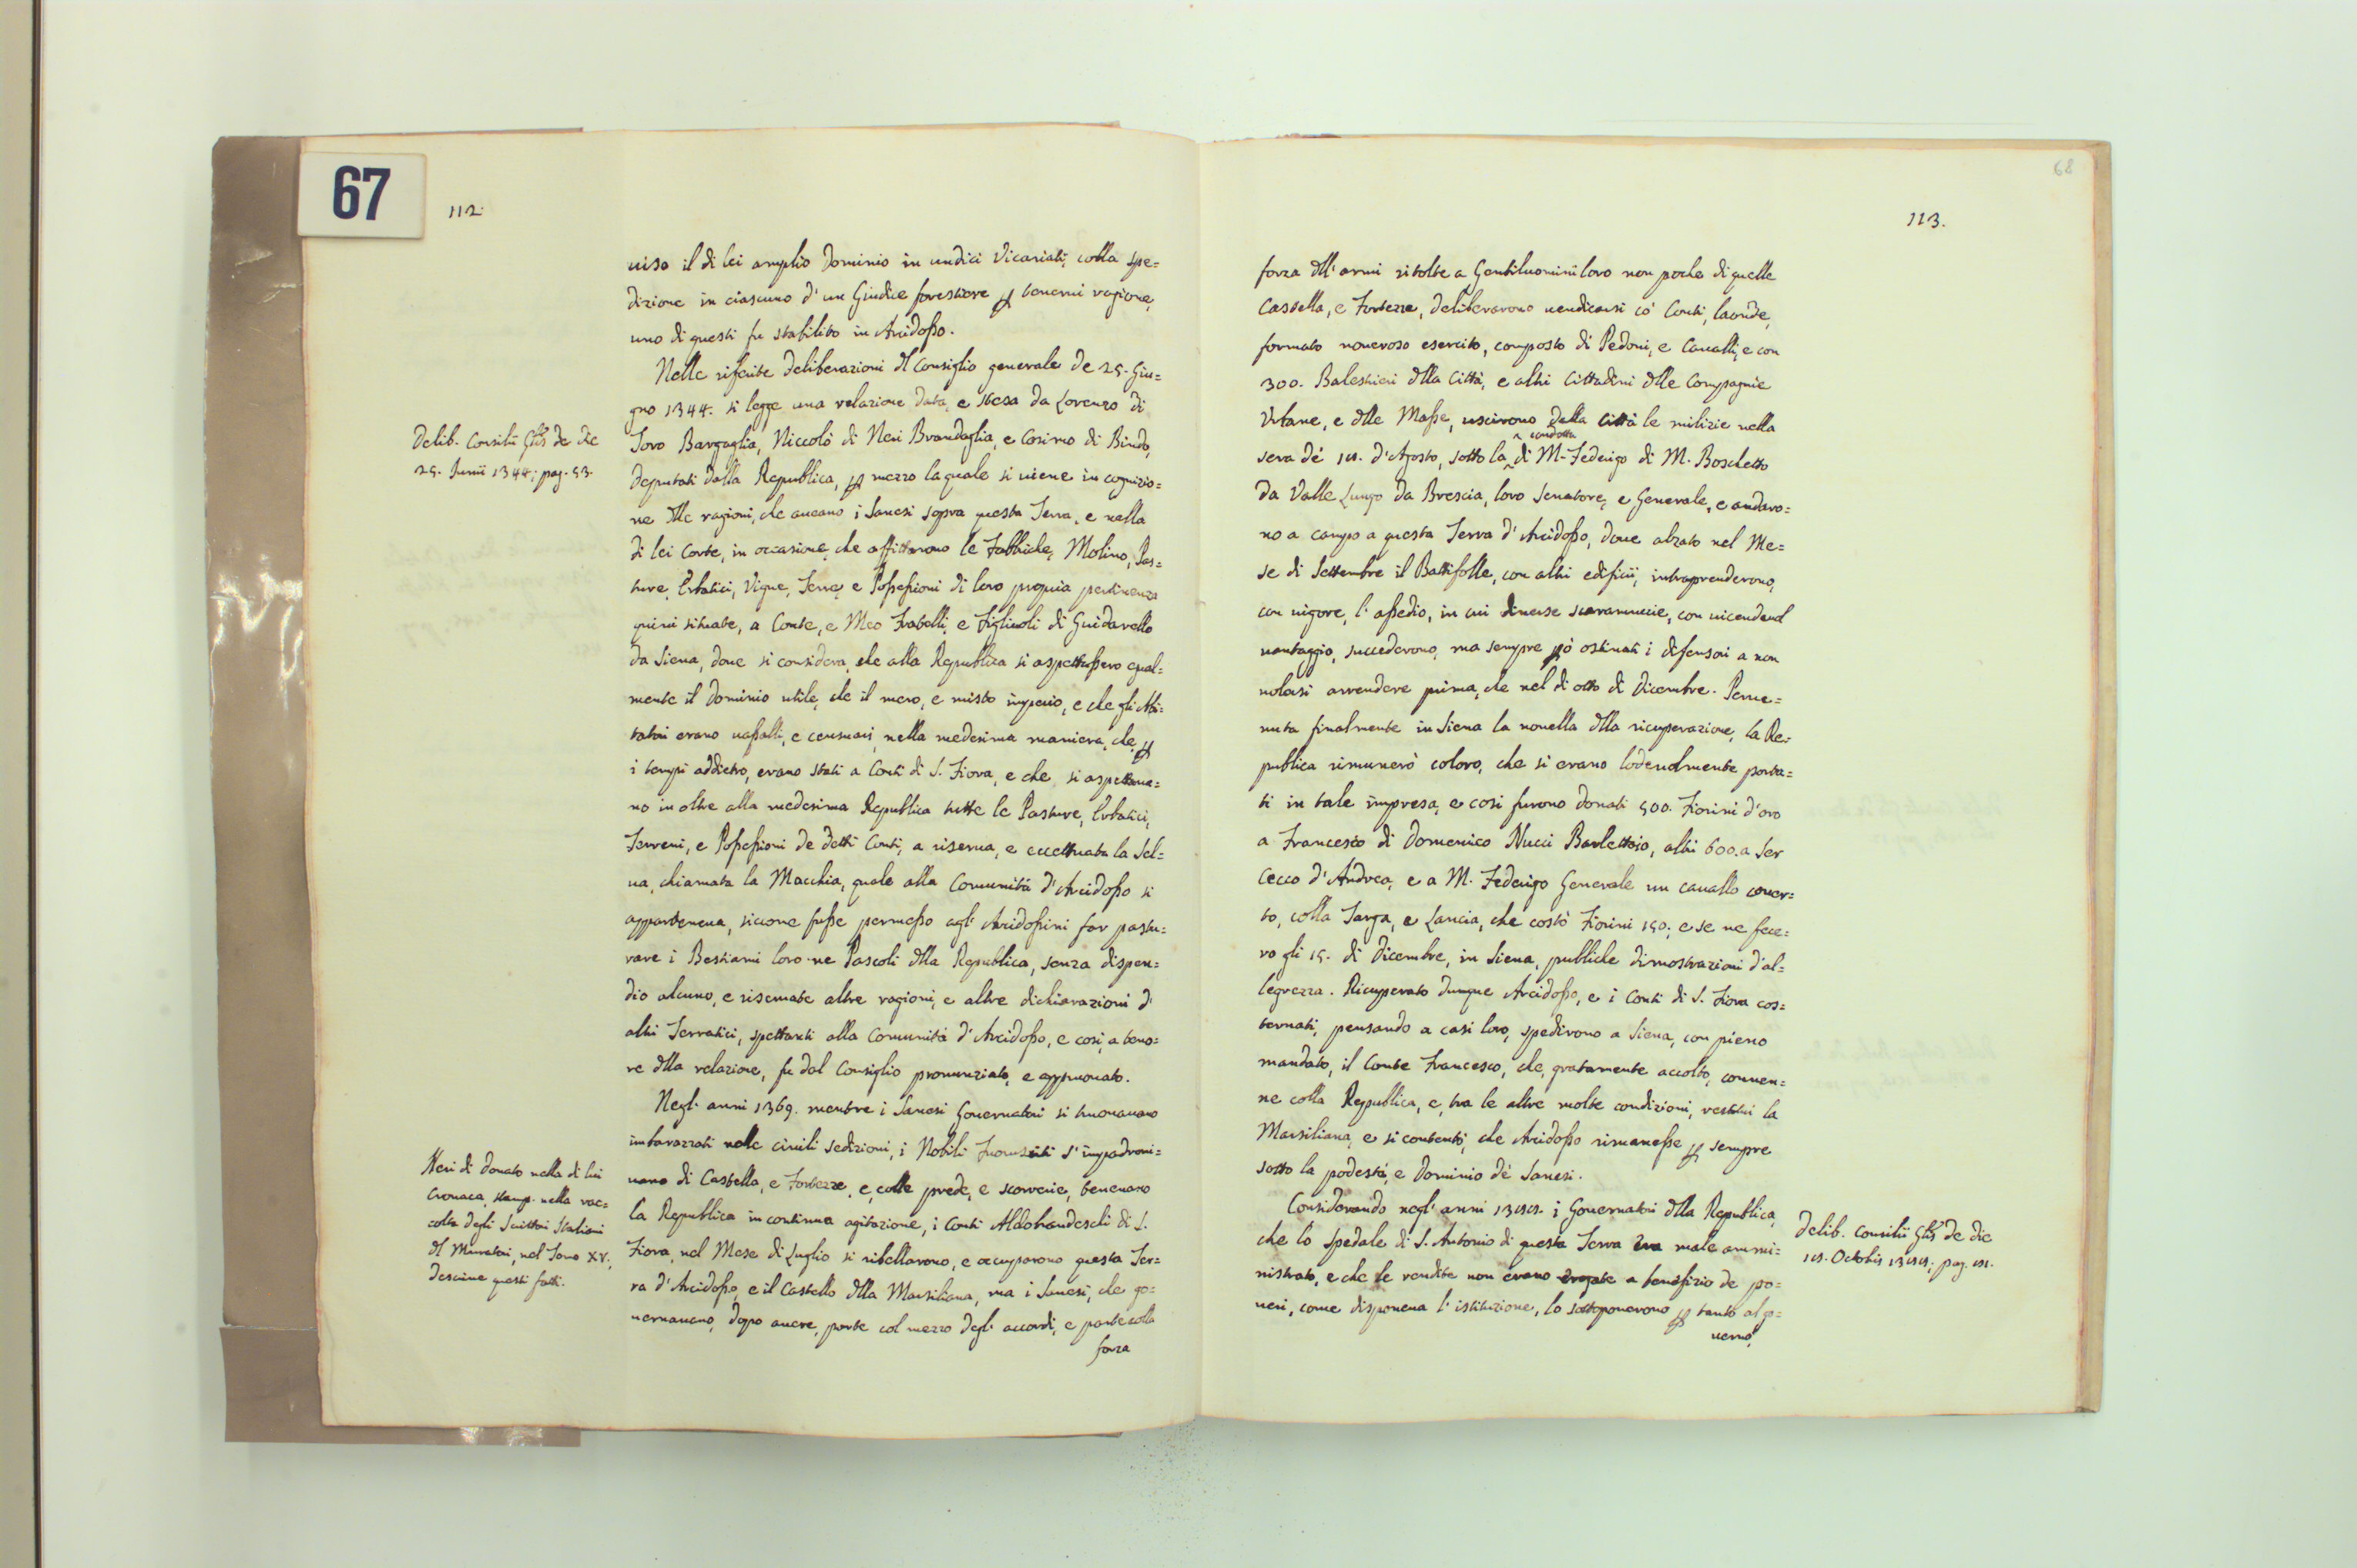 67
112.
uiso il di lei amplio Dominio in undici Vicariati, colla spe=
dizione in ciascuno d'un Giudice forestiere p tenerui ragione,
uno di questi fu stabilito in Arcidosso.
Nelle riferite deliberazioni dl Consiglio generale de 25. Giu=
gno 1344. si legge una relazione data, e stesa da Lorenzo di
Delib. Consilii Gtis de die
25. Junii 1344; pag. 53.
Toro Bargaglia, Niccolò di Neri Brandaglia, e Cosimo di Bindo,
deputati dalla Republica, p mezzo la quale si uiene in cognizio=
ne dlle ragioni, che aueano i Sanesi sopra questa Terra, e nella
di lei Corte, in occasione, che affittarono le Fabbriche, Molino, Pas=
ture, Erbatici, Vigne, Terre, e Possessioni di loro propria pertinenza
quiui situate, a Conte, e Meo Fratelli, e Figliuoli di Guidarello
da Siena, doue si considera, che alla Republica si aspettassero equal=
mente il dominio utile, che il mero, e misto imperio, e che gli Abi=
tatori erano uassalli, e censuari, nella medesima maniera, che, p
i tempi addietro, erano stati a Conti di S. Fiora, e che si aspettaua=
no in oltre alla medesima Republica tutte le Pasture, Erbatici,
Terreni, e Possessioni de detti Conti, a riserua, e eccettuata la Sel=
ua, chiamata la Macchia, quale alla Comunità d'Arcidosso si
apparteneua, siccome fusse permesso agl'Arcidossini far pastu=
rare i Bestiami loro ne Pascoli dlla Republica, senza dispen=
dio alcuno, e riseruate altre ragioni, e altre dichiarazioni d'
altri Terratici, spettanti alla Comunità d'Arcidosso, e così, a teno=
re dlla relazione, fu dal Consiglio pronunziato, e approuato.
Negl'anni 1369. mentre i Sanesi Gouernatori si trouauano
imbarazzati nelle ciuili sedizioni, i Nobili Fuorusciti s'impadroni=
Neri di Donato nella di lui
Cronaca, stamp. nella rac=
colta degli Scrittori Italiani
dl Muratori, nel Tomo XV,
descriue questi fatti.
uano di Castella, e Fortezze, e, colle prede, e scorrerie, teneuano
la Republica in continua agitazione, i Conti Aldobrandeschi di S.
Fiora, nel Mese di Luglio si ribellarono, e occuparono questa Ter=
ra d'Arcidosso, e il Castello dlla Marsiliana, ma i Sanesi, che go=
uernauano, dopo auere, parte col mezzo degl'accordi, e parte colla
forza
68
113.
forza dll'armi ritolte a Gentiluomini loro non poche di quelle
Castella, e Fortezze, deliberarono uendicarsi có Conti, laonde,
formato noueroso esercito, composto di Pedoni, e Caualli, e con
300. Balestrieri dlla Città, e altri Cittadini dlle Compagnie
Urbane, e dlle Masse, uscirono della Città le milizie nella
condotta
sera dé 18. d'Agosto, sotto la ^ di M. Federigo di M. Boschetto
da Valle Lungo da Brescia, loro Senatore, e Generale, e andaro=
no a campo a questa Terra d'Arcidosso, doue alzato nel Me=
se di Settembre il Battifolle, con altri edificii, intraprenderono,
con uigore, l'assedio, in cui diuerse scaramuccie, con uicendeuol
uantaggio, succederono, ma sempre pò ostinati i difensori a non
uolersi arrendere prima, che nel dì otto di Dicembre. Perue=
nuta finalmente in Siena la nouella dlla ricuperazione, la Re=
publica rimunerò coloro, che si erano lodeuolmente porta=
ti in tale impresa, e così furono donati 500. Fiorini d'oro
a Francesco di Domenico Nucci Barlettaio, altri 600. a Ser
Cecco d'Andrea, e a M. Federigo Generale un cauallo couer=
to, colla Targa, e Lancia, che costò Fiorini 150; e se ne fece=
ro gli 15. di Dicembre, in Siena, publiche dimostrazioni d'al=
legrezza. Ricuperato dunque Arcidosso, e i Conti di S. Fiora cos=
ternati, pensando a casi loro, spedirono a Siena, con pieno
mandato, il Conte Francesco, che, gratamente accolto, conuen=
ne colla Republica, e, tra le altre molte condizioni, restituì la
Marsiliana, e si contentò, che Arcidosso rimanesse p sempre
sotto la podestà, e Dominio dé Sanesi.
Considerando negl'anni 1388. i Gouernatori dlla Republica,
che lo Spedale di S. Antonio di questa Terra era male ammi=
Delib. Consilii Gtis de die
18. Octobis 1388; pag. 81.
nistrato, e che le rendite non erano erogate a benefizio de po=
ueri, come disponeua l'istituzione, lo sottoponerono p tanto al go=
uerno,